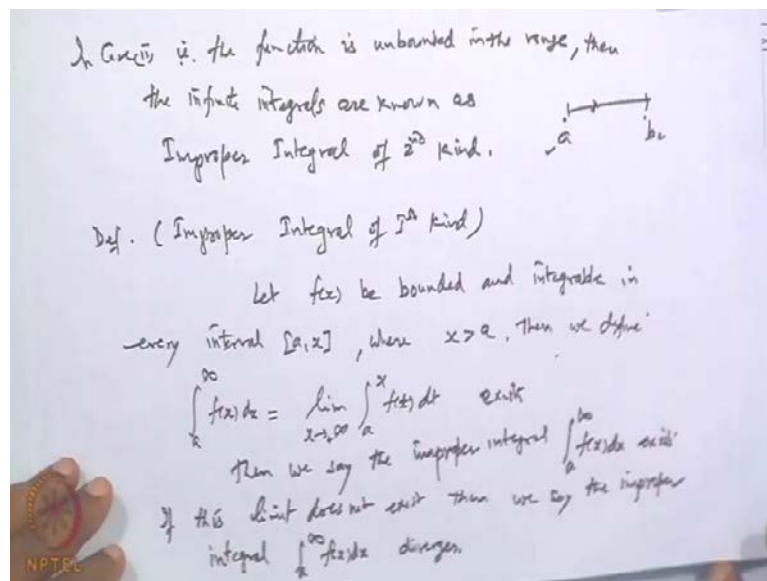 In Case(ii) i.e. the function is unbounded in the range, then
the infinite integrals are known as
Improper Integral of 2nd kind.
a b
Def. (Improper Integral of Ist kind)
Let f(x) be bounded and integrable in
every interval [a,x], where x>a. Then we define
∫_a^∞ f(x)dx = lim_{x→∞} ∫_a^x f(t)dt exists
Then we say the improper integral ∫_a^∞ f(x)dx exists
If this limit does not exist then we say the improper
integral ∫_a^∞ f(x)dx diverges.
NPTEL